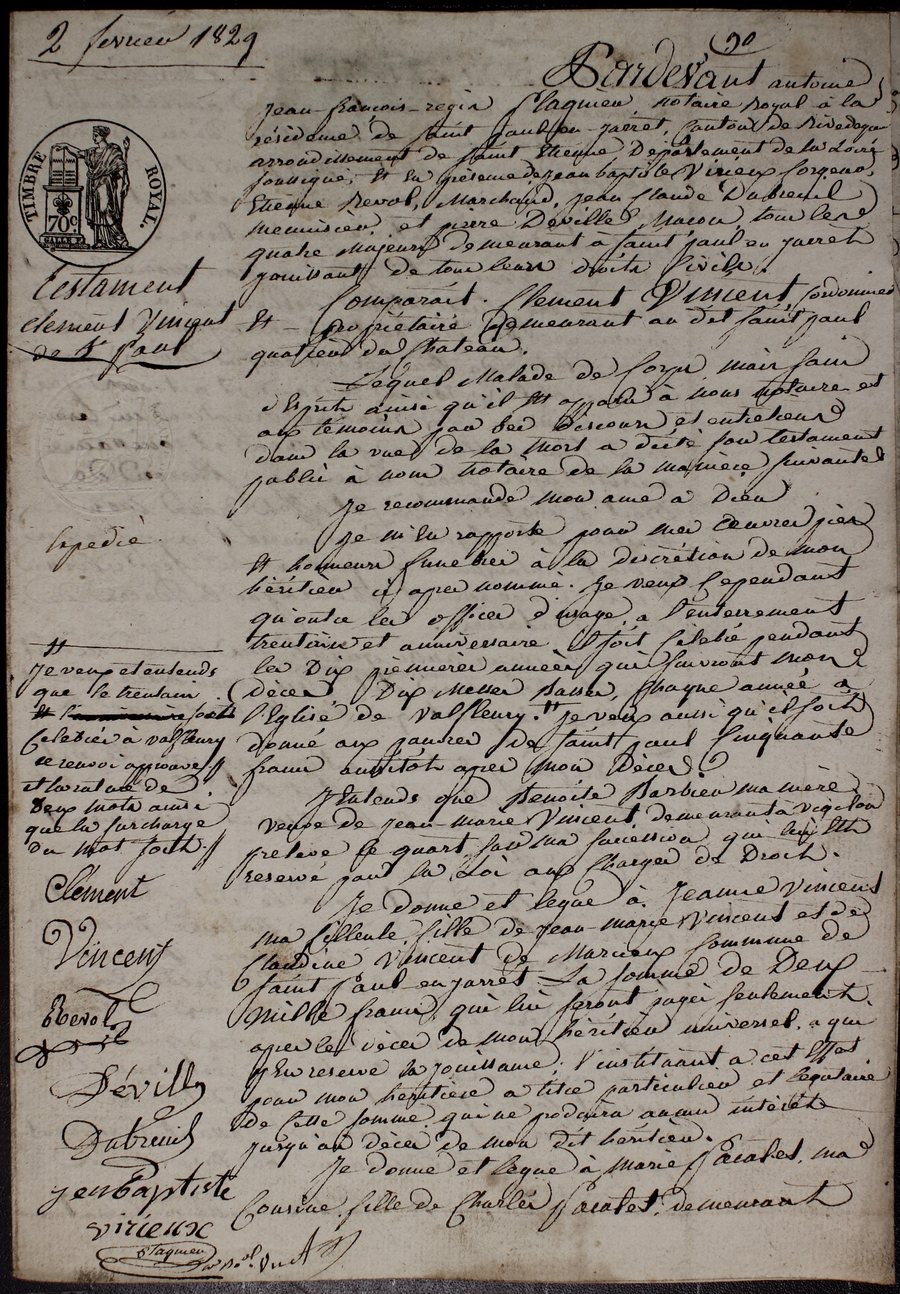 2 fevrier 1829
30
Pardevant antoine
Jean-françois-regis flaqmen notaire Royal à la
résidence de Saint paul-en-jarret, Canton de Rivedegier
arrondissement de Saint Etienne Département de la Loire
soussigné, Et En présence de jean baptiste Virieux forgeron,
Etienne Reval, Marchand, jean Claude Dubreuil
menuisier, et pierre Déville Maçon, tous les
quatre Majeurs demeurant à Saint paul en jarrêt
jouissant de tous leurs droits Civils.
Comparait Clement Vincent, Cordonnier
Et propriétaire demeurant au dit saint paul
quartier du Chateau.
Lequel Malade de Corps, mais sain
d'Esprit ainsi qu'il Est apparu à nous notaire et
aux temoins par ses discours et entretiens
dans la vue de la mort a dicté son testament
public à nous notaire de la maniere suivante
Je recommande mon ame a Dieu
Je m'En rapporte pour mes Œuvres pies
Et honneurs funebres à la discrétion de mon
héritier ci apres nommé. Je veux Cependant
qu'outre les offices d'usage, a l'enterrement
trentaine et anniversaire il soit Célébré pendant
les Dix premieres années qui suivront mon
décès Dix Messes Basses, Chaque année a
l'Eglise de Valfleury. # Je veux aussi qu'il soit
donné aux pauvres de saint paul Cinquante
francs aussitôt apres mon Décès.
J'Entends que Benoite Barbier ma mère
veuve de jean-marie Vincent demeurant a
preleve le quart sur ma succession qui lui Est
reservé par la Loi aux Charges de Droit.
Je donne et legue à Jeanne Vincent
ma filleule, fille de jean-marie Vincent et de
Claudine Vincent de Marcieux Commune de
saint Paul-en-jarret La somme de Deux
Mille francs, qui lui seront payés seulement
apres le décès de mon héritier universel, a qui
j'En reserve la jouissance; l'instituant a cet Effet
pour mon héritiere a titre particulier et legataire
de Cette somme qui ne produira aucun intérêt
jusqu'au décès de mon dit héritier.
Je donne et legue à Marie Pacalet, ma
Cousine, fille de Charles Pacalet, demeurant
TIMBRE ROYAL.
70c
Testament
clement Vincent
de St Paul
Expedié
#
Je veux et entends
que le trentain
Et l'anniversaire soit
Celebrés à valfleury
ce renvoi approuvé
et la rature de
Deux mots ainsi
que la surcharge
du mot soit. //
Clement
Vincent
Reval
Déville
Dubreuil
jean Baptiste
Virieux